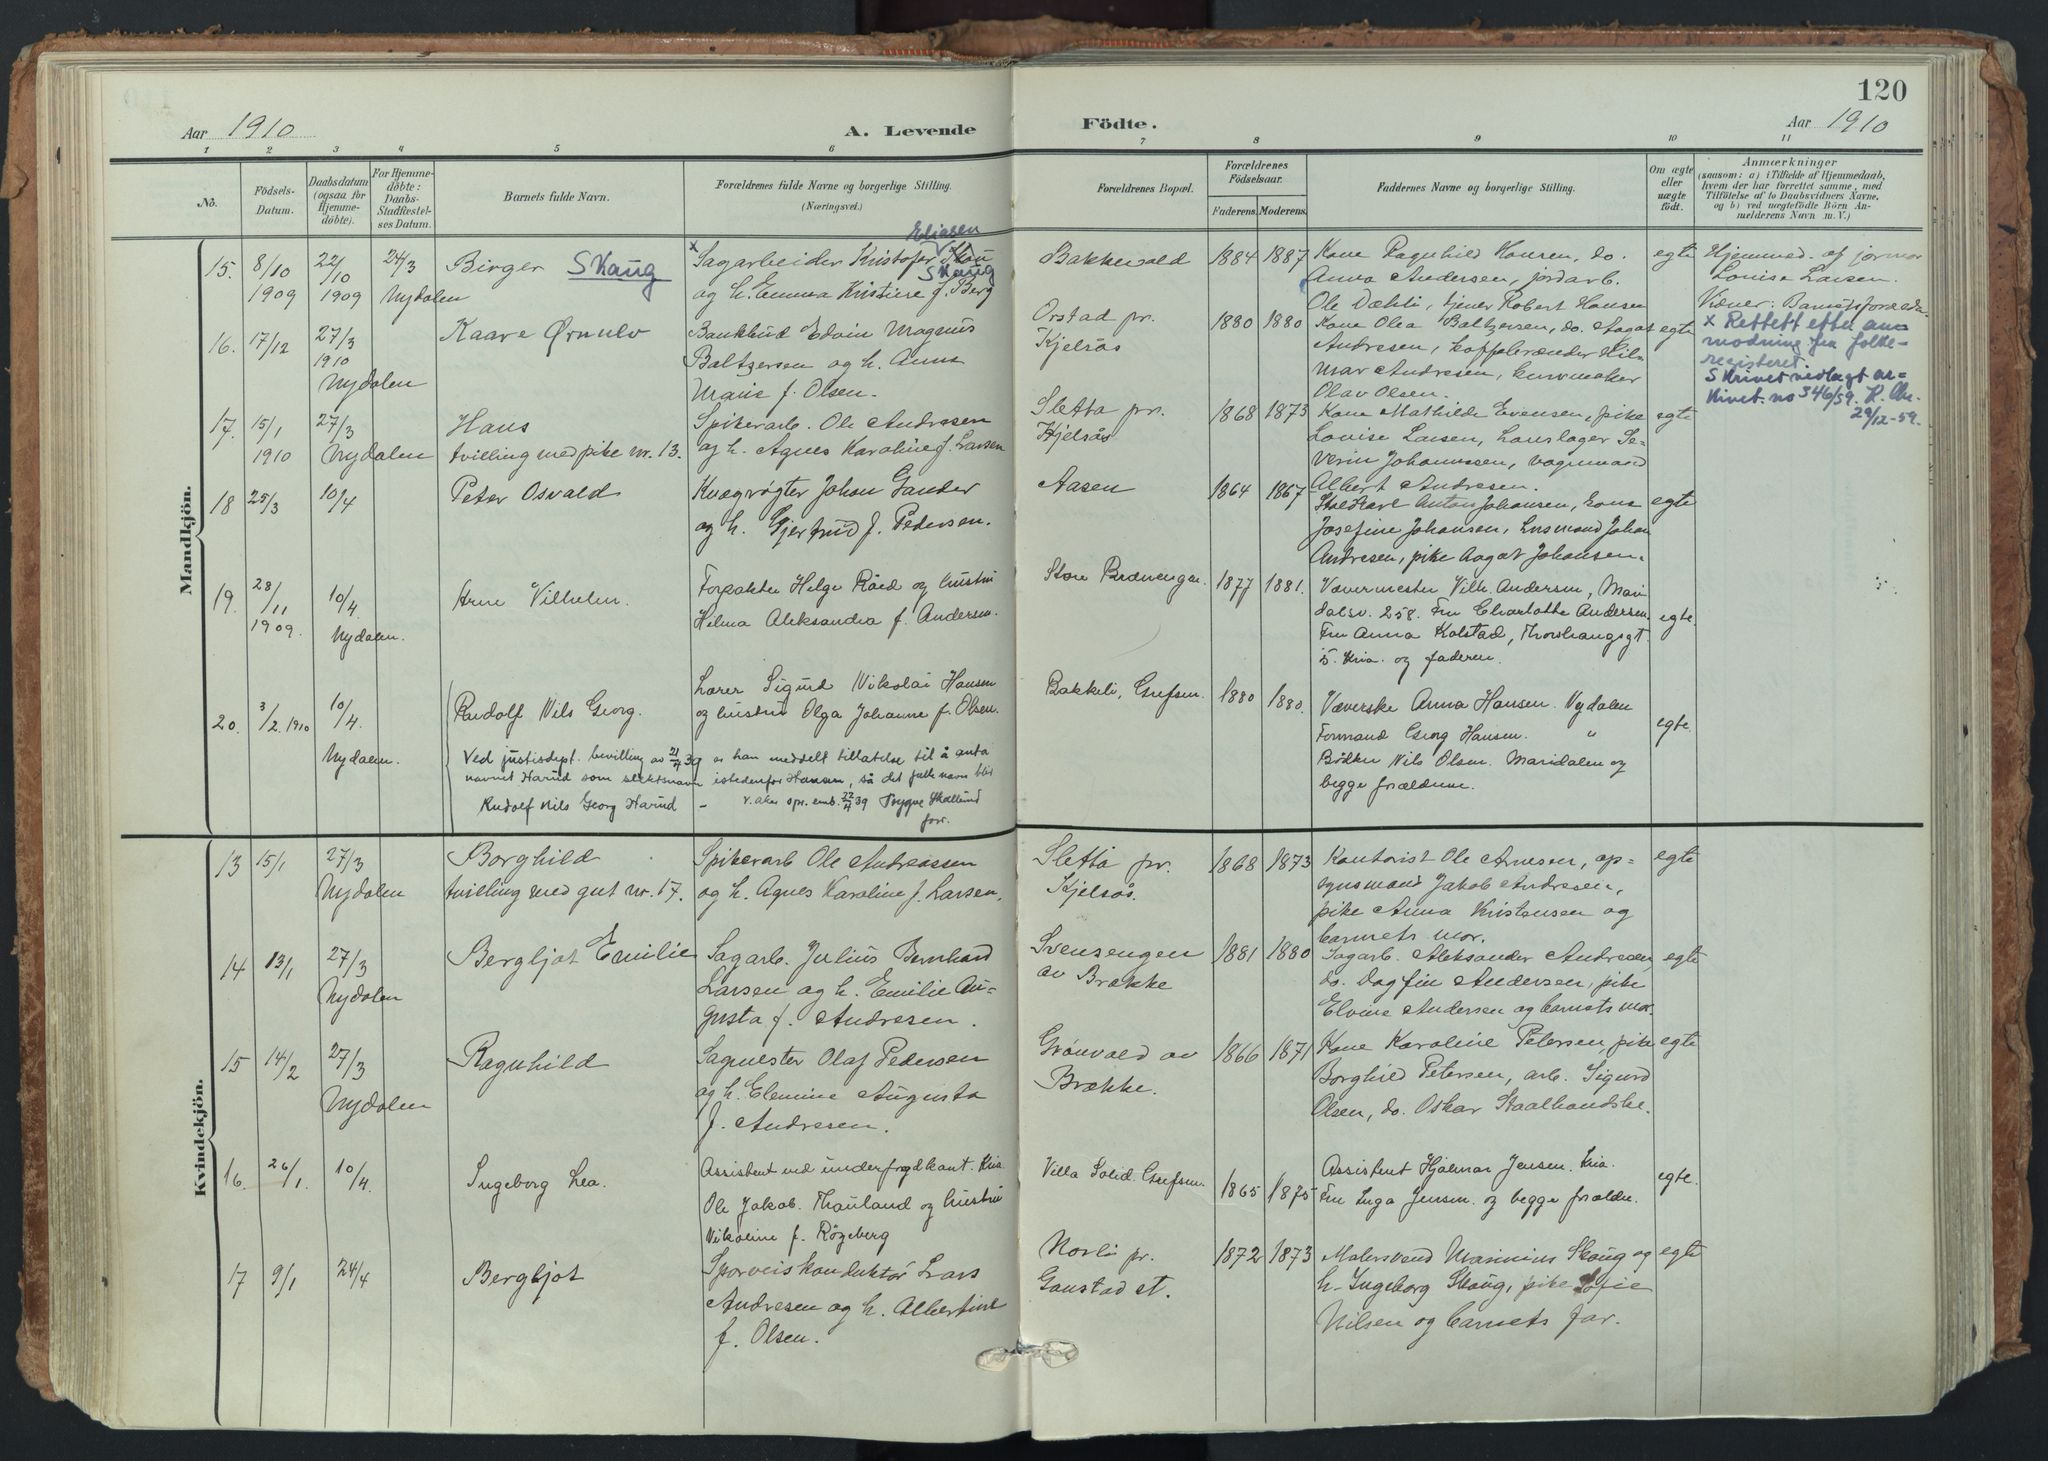 120
Aar 1910
A. Levende
Födte.
Aar 1910
1 2 3 4 5 6 7 8 9 10 11
No.
Födsels-
Datum.
Daabsdatum
(ogsaa for
Hjemme-
döbte).
For Hjemme-
döbte:
Daabs-
Stadfæstel-
ses Datum.
Barnets fulde Navn.
Forældrenes fulde Navne og borgerlige Stilling.
(Næringsvei.)
Forældrenes Bopæl.
Forældrenes
Födselsaar.
Faderens. Moderens.
Faddernes Navne og borgerlige Stilling.
Om ægte
eller
uægte
födt.
Anmærkninger
(saasom: a) i Tilfælde af Hjemmedaab,
hvem der har forrettet samme, med
Tilföielse af to Daabsvidners Navne,
og b) ved uægtefödte Börn An-
melderens Navn m. V.)
Mandkjön.
15. 8/10 1909
22/10 1909
24/3 Nydalen
Birger Skaug
x Sagarbeider Kristofer Eliasen
Skaug
og h. Emma Kristine f. Berg
Bakkevold
1884 1887
Kone Ragnhild Hansen, do.
Anna Andersen, jordarb.
Ole Dæhli, tjener Robert Hansen
egte
Hjemmed. af jormor
Louise Larsen.
Vidner: Barnets forældre
x Rettett efter an-
modning fra folke-
registeret.
Skrivet vedlagt ar-
kivet. no 346/59.
29/12-59.
16. 17/12
27/3 1910
Nydalen
Kaare Ørnulv
Bankbud Edvin Magnus
Baltzersen og h. Anna
Marie f. Olsen.
Orstad pr.
Kjelsås
1880 1880
Kone Olea Baltzersen, do. Aagot
Andresen, handelsrænder Hil-
mar Andresen, kurvmaker
Olav Olsen.
egte
17. 15/1 1910
27/3
Nydalen
Hans
tvilling med pike nr. 13.
Spikerarb. Ole Andresen
og h. Agnes Karoline f. Larsen
Sletta pr.
Kjelsås
1868 1873
Kone Mathilde Evensen, pike
Lovise Larsen, Se-
verin Johannesen, vognmand
Albert Andresen.
egte
18 25/3
10/4
Peter Osvald
Kvægrøgter Johan Gander
og h. Gjertrud f. Pedersen.
Aasen
1864 1867
Staldkarl Anton Johansen, kone
Josefine Johansen, Johan
Andresen, pike Aagot Johansen.
egte
19. 28/11 1909.
10/4.
Nydalen.
Arne Vilhelm.
Forpakter Helge Röed og hustru
Helma Aleksandra f. Andersen.
Store Brdnengen.
1877 1881.
Vævermester Vilh. Andersen, Mari-
dalsv. 258. Fru Charlotte Andersen
Fru Anna Kolstad, Thorshaugsgt
5. Kria. og faderen.
egte.
20. 3/2. 1910
10/4.
Nydalen.
Rudolf Nils Georg.
Lærer Sigurd Nikolai Hansen
og hustru Olga Johanne f. Olsen.
Bakkeli, Grefsen.
1880 1880.
Væverske Anna Hansen. Nydalen
Formand Georg Hansen. "
Bödker Nils Olsen. Maridalen og
begge forældrene.
egte.
Ved justisdept. bevilling av 21/4 39 er han meddelt tillatelse til å anta
navnet Harud som slektsnavn istedenfor Hansen, så det fulle navn blir
Rudolf Nils Georg Harud - v. aker spr. emb. 22/4 39 Trygve Skallerud
forr.
Kvindekjön.
13 15/1
27/3
Nydalen
Borghild
tvilling med gut nr. 17.
Spikerarb Ole Andreassen
og h. Agnes Karoline f. Larsen.
Sletta pr.
Kjelsås.
1868 1873
Kontorist Ole Arnesen, op-
synsmand Jakob Andresen,
pike Anna Kristensen og
barnets mor.
egte
14 13/1
27/3
Nydalen
Bergljot Emilie
Sagarb. Julius Bernhard
Larsen og h. Emilie Au-
gusta f. Andresen.
Svensengen
av Brække
1881 1880
Sagarb. Aleksander Andresen,
do. Dagfin Andersen, pike
Elvine Andersen og barnets mor.
egte
15 14/2
27/3
Nydalen
Ragnhild
Sagmester Olaf Pedersen
og h. Elemine Augusta
f. Andresen.
Grönvold av
Brække.
1866 1871
Kone Karoline Petersen, pike
Borghild Petersen, arb. Sigurd
Olsen, do. Oskar Staalhandske.
egte
16. 26/1.
10/4.
Ingeborg Lea.
Assistent ved underfogdkont. Kria.
Ole Jakob. Thauland og hustru
Nikoline f. Rögeberg
Villa Solid. Grefsen.
1865 1875
Assistent Hjalmar Jensen. Kria.
Fru Inga Jensen. og begge forældre.
egte.
17 9/1
24/4
Bergljot
Sporveiskonduktör Lars
Andresen og h. Albertine
f. Olsen.
Norli pr.
Gaustad st.
1872 1873
Malersvend Marinius Skaug og
h. Ingeborg Skaug, pike Sofie
Nilsen og barnets far.
egte